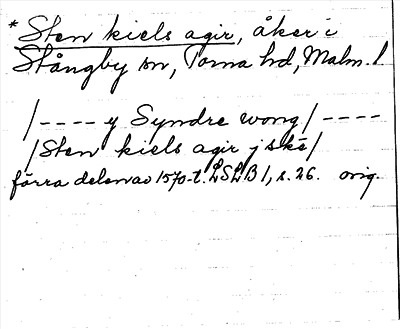 * Sten kiels agir, åker i
Stångby sn, Torna hd, Malm. l
/---- y Syndre wong/----
/Sten kiels agir j skë/
förra delen av 1570-t. LSLB 1, s. 26. orig.